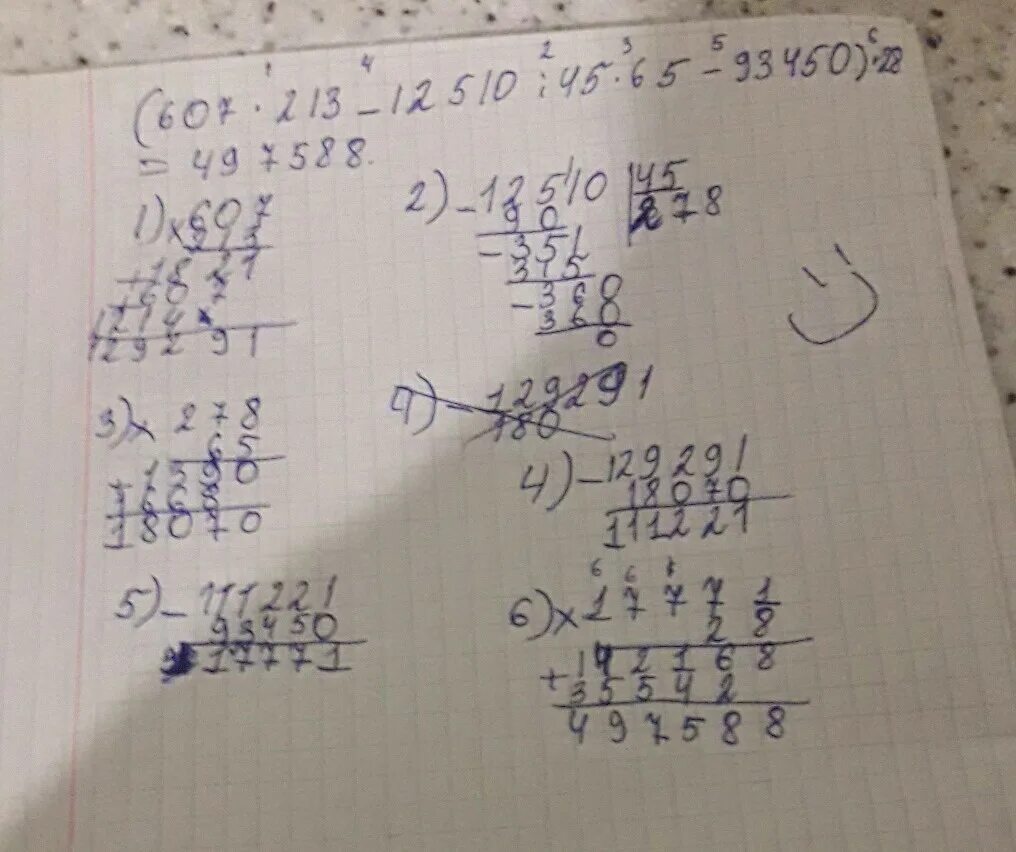 1 4 2 3 5 6
(607 · 213 - 12510 : 45 · 65 - 93450) · 28
= 497588.
1) × 607
213
+ 1821
+ 607
1214
129291
2) - 12510 | 45
90 278
- 351
315
- 360
360
0
3) × 278
65
+ 1390
1668
18070
4) - 129291
180
4) - 129291
18070
111221
5) - 111221
93450
17771
6) × 17771
28
+ 142168
35542
497588